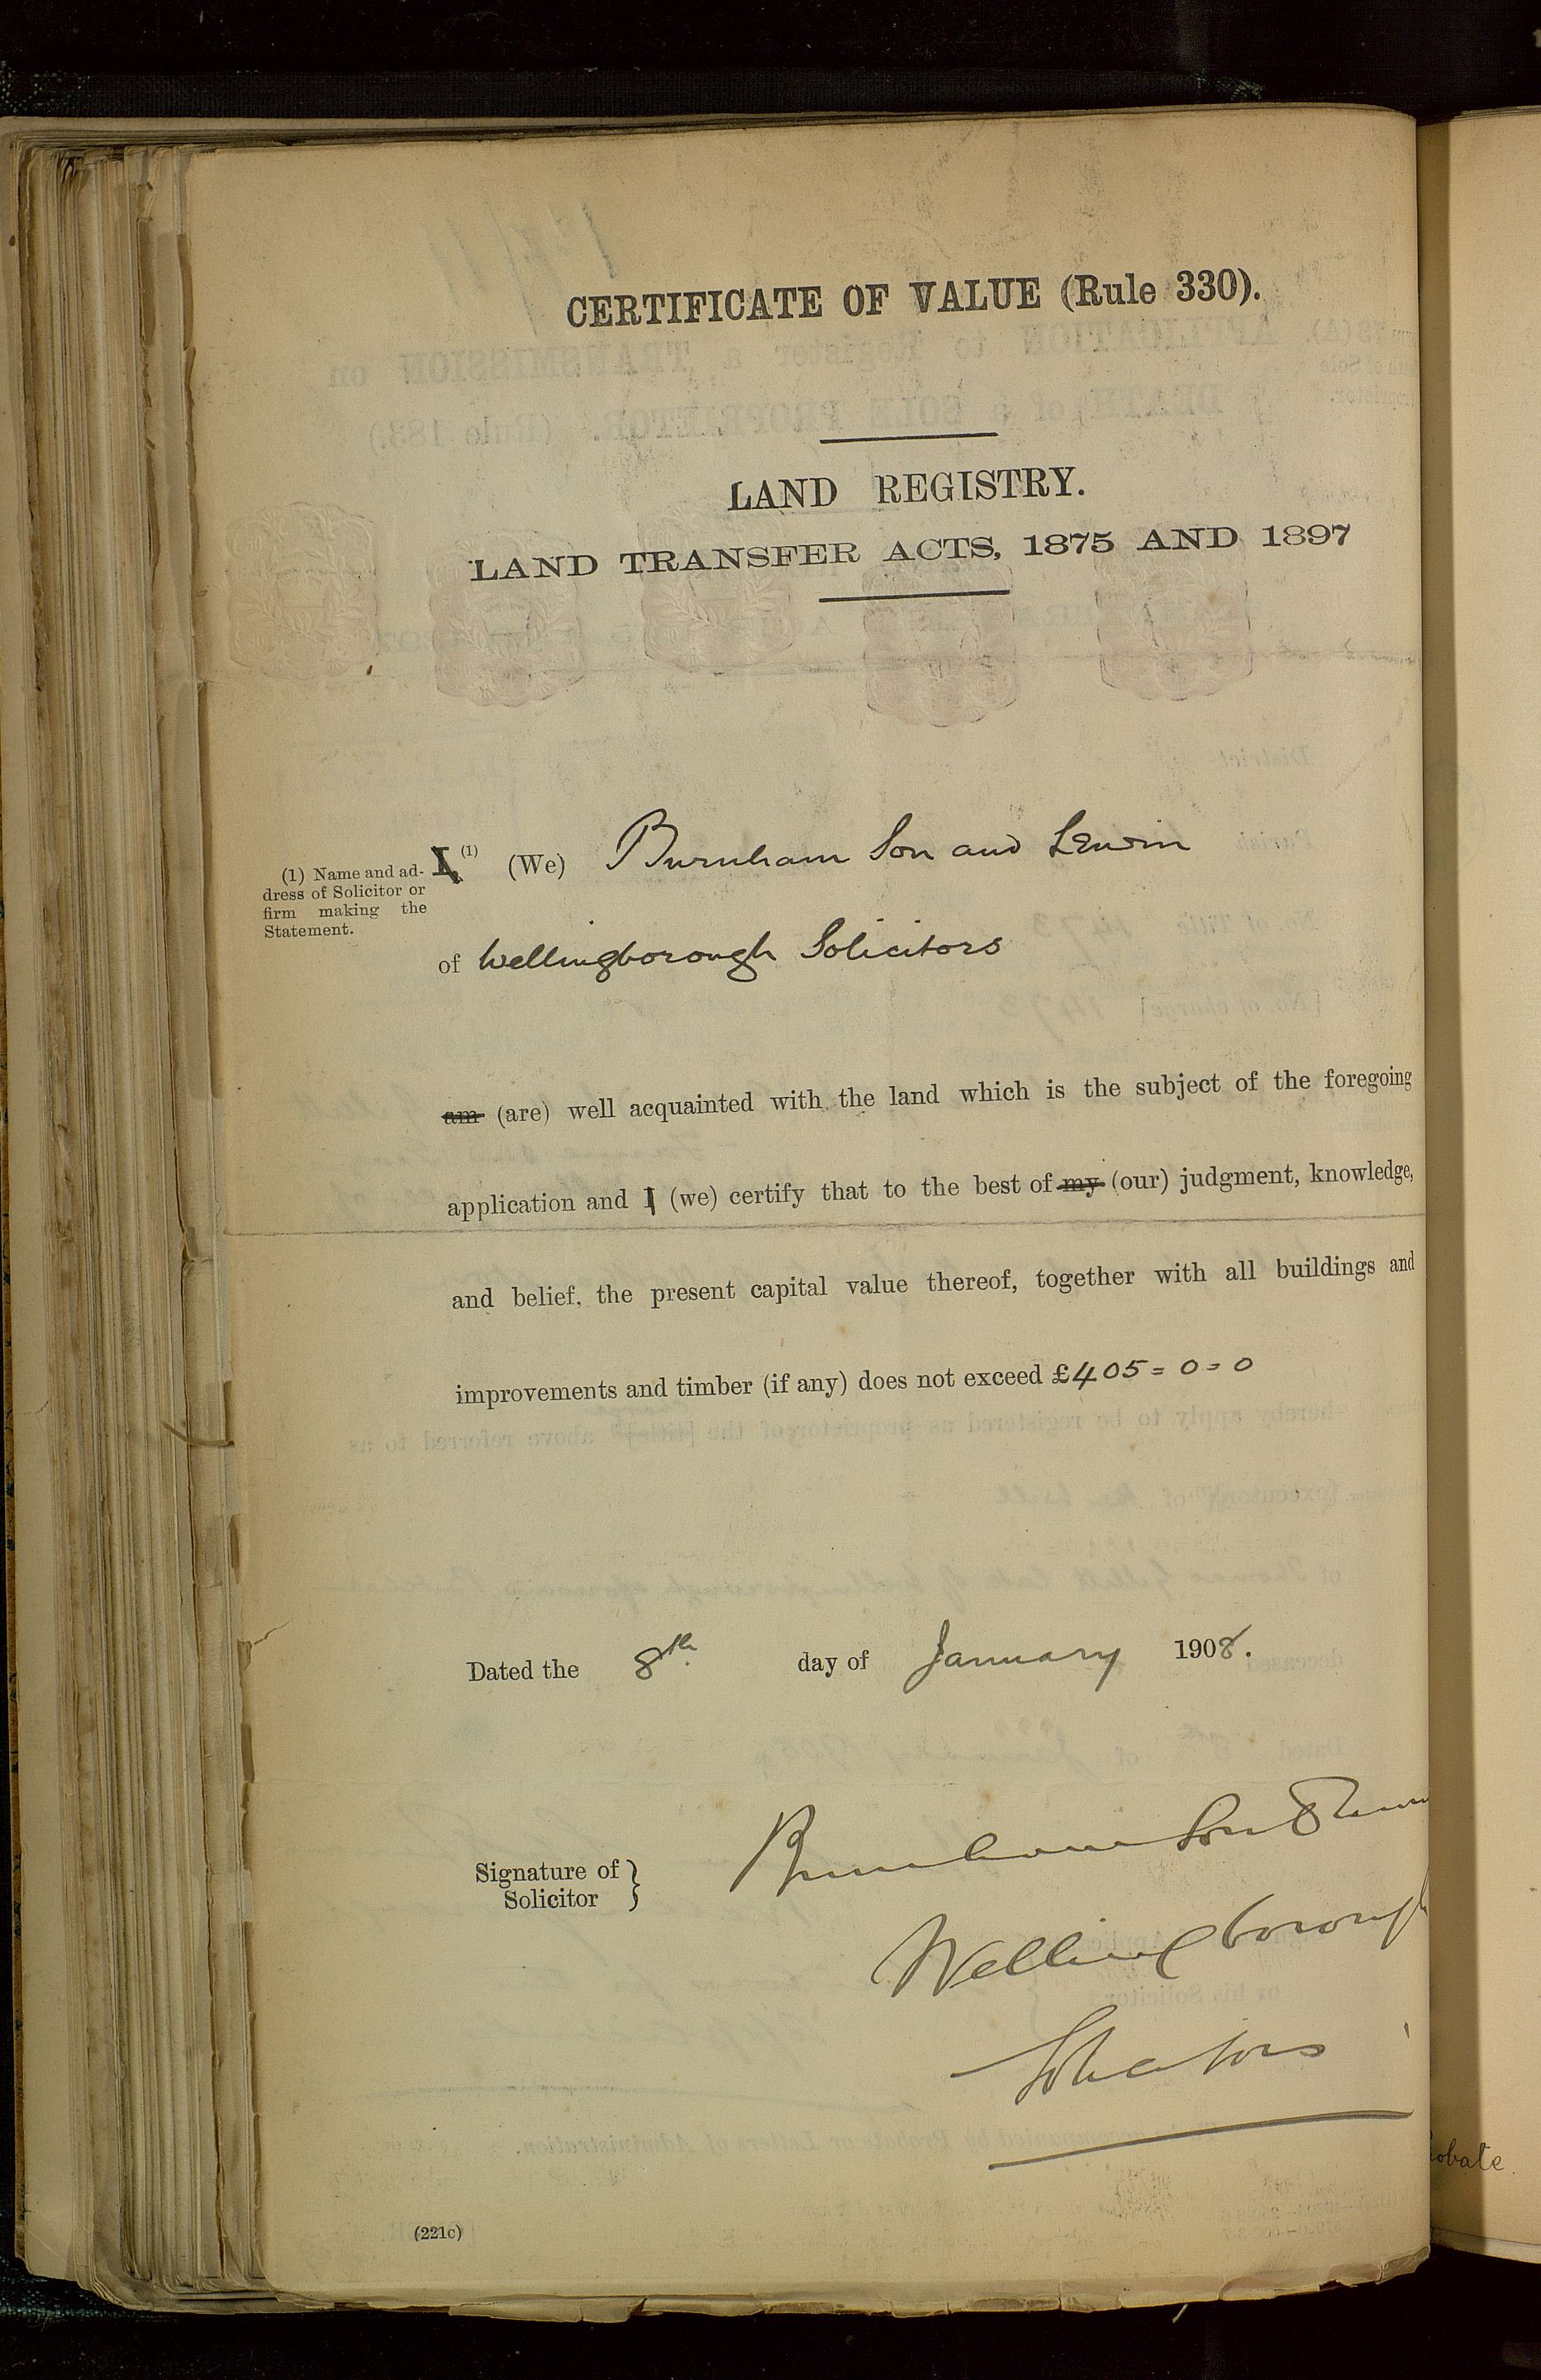 CERTIFICATE OF VALUE (Rule 330).
LAND REGISTRY.
LAND TRANSFER ACTS, 1875 AND 1897
(1) Name and ad-
dress of Solicitor or
firm making the
Statement.
I (1) (We) Burnham Son and Lewin
of Wellingborough Solicitors
am (are) well acquainted with the land which is the subject of the foregoing
application and I (we) certify that to the best of my (our) judgment, knowledge,
and belief, the present capital value thereof, together with all buildings and
improvements and timber (if any) does not exceed £405=0=0
Dated the 8th day of January 1908.
Signature of
Solicitor }
Burnham Son & Lewin
Wellingborough
Solicitors
obate.
(221c)